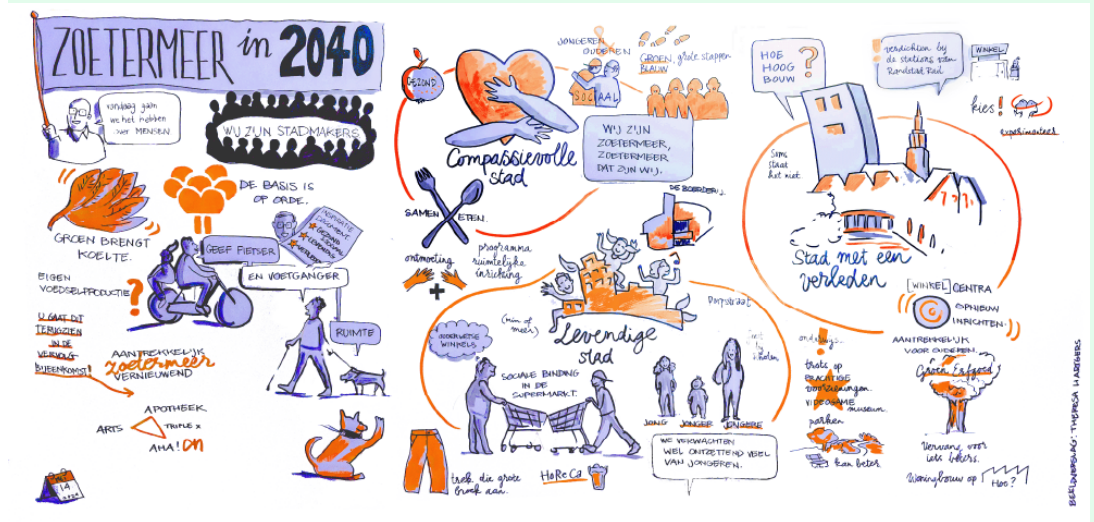 ZOETERMEER in 2040
vandaag gaan
we het hebben
over MENSEN.
WIJ ZIJN STADMAKERS
GROEN BRENGT
KOELTE.
DE BASIS IS
OP ORDE.
GEEF FIETSER
EN VOETGANGER
RUIMTE
EIGEN
VOEDSELPRODUCTIE
?
U GAAT DIT
TERUGZIEN
IN DE
VERVOLG-
BIJEENKOMST!
AANTREKKELIJK
zoetermeer
VERNIEUWEND
APOTHEEK
ARTS
TRIPLE X
AHA!
14
GEZOND
Compassievolle
stad
JONGEREN
OUDEREN
SOCIAAL
GROEN, grote stappen
BLAUW
WIJ ZIJN
ZOETERMEER,
ZOETERMEER
DAT ZIJN WIJ.
SAMEN
ETEN.
ontmoeting
+
programma
ruimtelijke
inrichting
DE BOERDERIJ
(min of
meer)
Levendige
stad
Dorpsstraat
WINKELS
SOCIALE BINDING
IN DE
SUPERMARKT.
JONG
JONGER
JONGERE
WE VERWACHTEN
WEL ONTZETTEND VEEL
VAN JONGEREN.
trek die grote
broek aan.
HoReCa
HOE
HOOG
BOUW
?
! verdichten bij
de stations van
Randstad Rail
WINKEL
kies!
experimenteer
Soms
staat
het niet.
Stad met een
verleden
[WINKEL] CENTRA
OPNIEUW
INRICHTEN.
AANTREKKELIJK
VOOR OUDEREN.
onderwijs...
!
trots op
PRACHTIGE
voorzieningen.
VIDEOGAME
museum.
parken
kan beter
Groen Erfgoed
Vervang voor
iets beters.
Woningbouw op
Hoo?
BEELDVERSLAG: THERESA HARTGERS